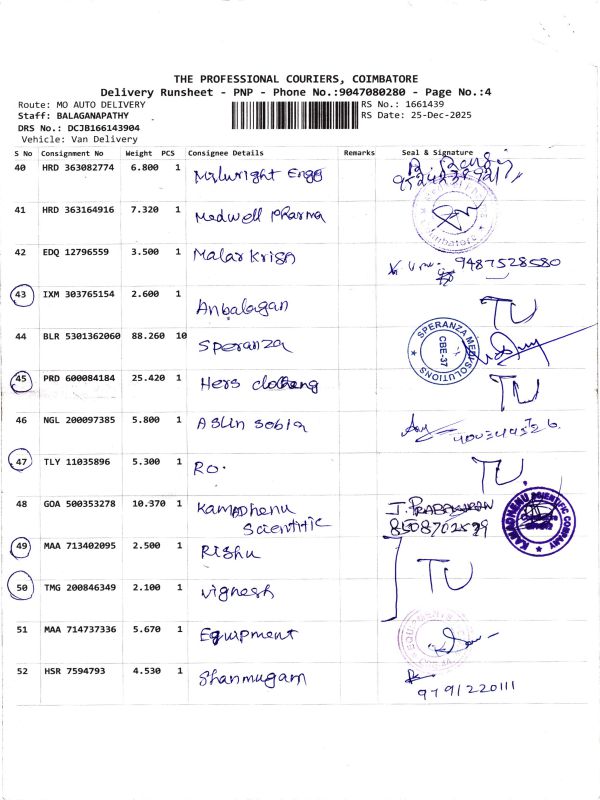 THE PROFESSIONAL COURIERS, COIMBATORE
Delivery Runsheet - PNP - Phone No.:9047080280 - Page No.:4
Route: MO AUTO DELIVERY
RS No.: 1661439
Staff: BALAGANAPATHY
RS Date: 25-Dec-2025
DRS No.: DCJB166143904
Vehicle: Van Delivery
S No Consignment No Weight PCS Consignee Details Remarks Seal & Signature
40 HRD 363082774 6.800 1 Milwright Engg
41 HRD 363164916 7.320 1 Medwell Pharma
42 EDQ 12796559 3.500 1 Malar Krisn 9487528580
43 IXM 303765154 2.600 1 Anbalagan TU
44 BLR 5301362060 88.260 10 Speranza SPERANZA MEDVSOLUTIONS CBE-37
45 PRD 600084184 25.420 1 Hers clothing TU
46 NGL 200097385 5.800 1 Aslin Sobia
47 TLY 11035896 5.300 1 Ro. TU
48 GOA 500353278 10.370 1 Kamadhenu Scientific J. PRABAKARAN KAMADHENU SCIENTIFIC COMPANY
49 MAA 713402095 2.500 1 Rishu
50 TMG 200846349 2.100 1 Vignesh TU
51 MAA 714737336 5.670 1 Equipment
52 HSR 7594793 4.530 1 Shanmugam 9791220111